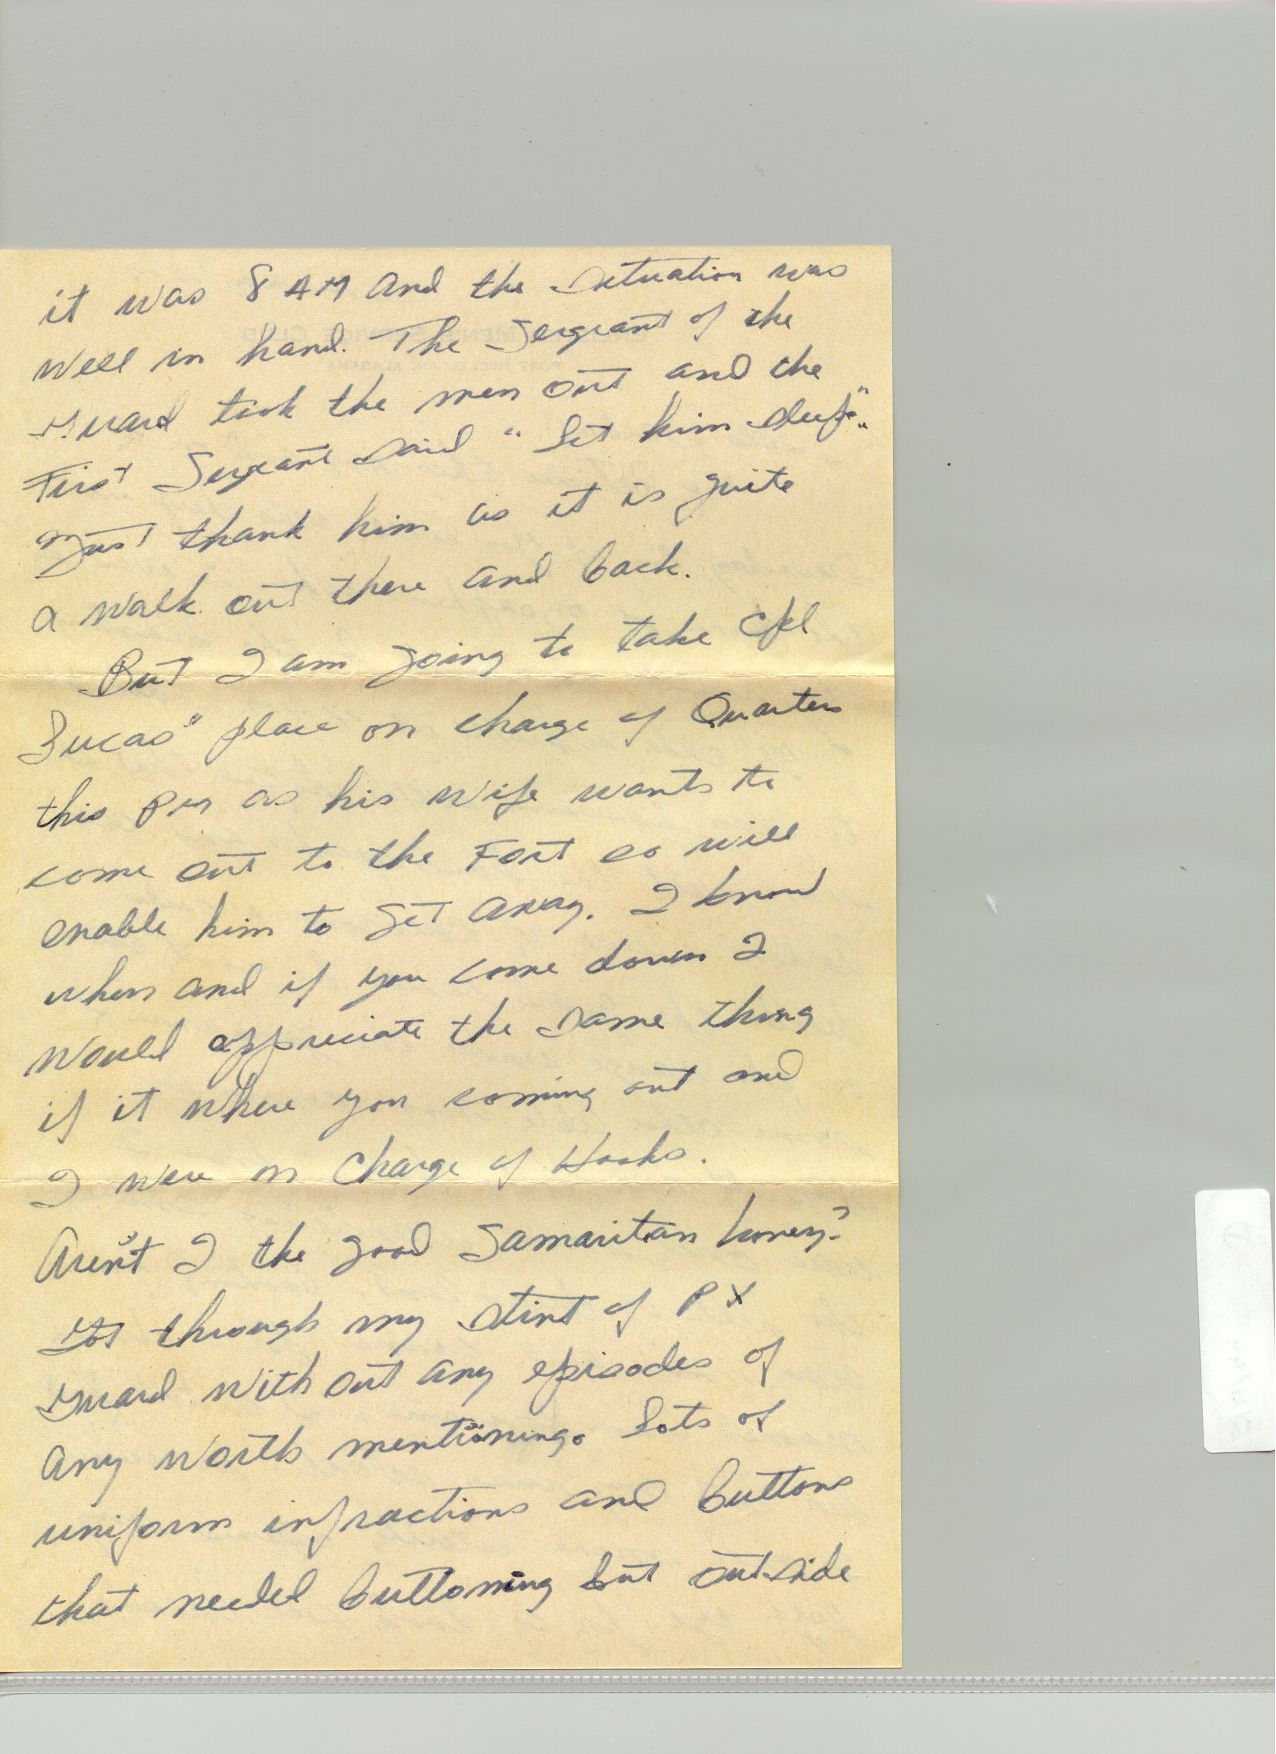 it was 8 AM and the situation was
well in hand. The Sergeant of the
Guard took the men out and the
First Sergeant said "Let him sleep".
Must thank him as it is quite
a walk out there and back.
But I am going to take Cpl
Lucas" place on charge of Quarters
this PM as his wife wants to
come out to the Fort so will
enable him to get away. I know
when and if you come down I
would appreciate the same thing
if it where you coming out and
I were on Charge of
Aren't I the good Samaritan honey?
Got through my stint of PX
Guard without any episodes of
any worth mentioning. Lots of
uniform infractions and buttons
that needed buttoning but outside